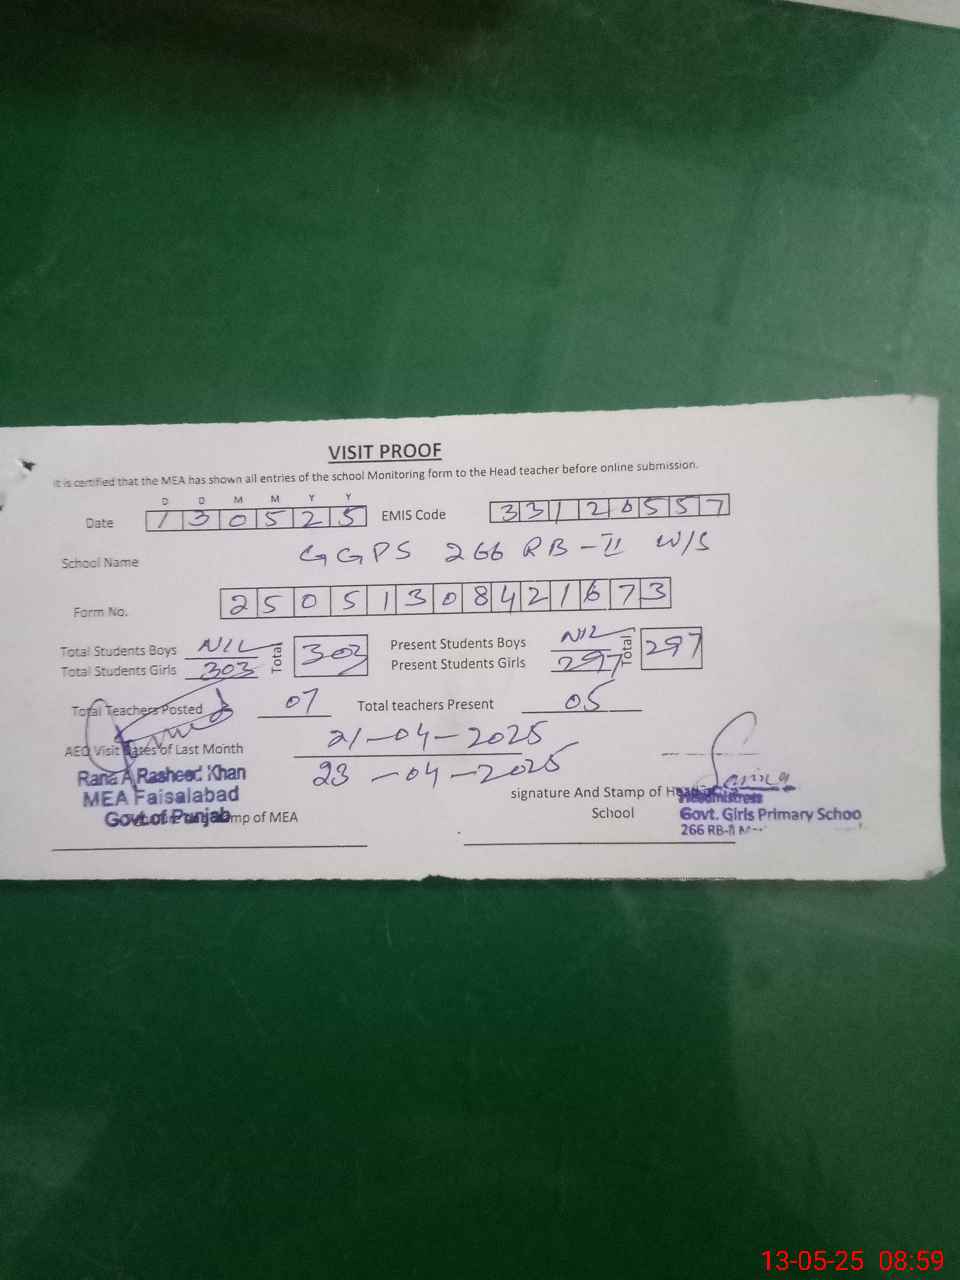 VISIT PROOF
It is certified that the MEA has shown all entries of the school Monitoring form to the Head teacher before online submission.
D D M M Y Y
Date 1 3 0 5 2 5 EMIS Code 3 3 1 2 0 5 5 7
School Name GGPS 266 RB-II W/S
Form No. 2 5 0 5 1 3 0 8 4 2 1 6 7 3
Total Students Boys NIL Total 303 Present Students Boys NIL Total 297
Total Students Girls 303 Present Students Girls 297
Total Teachers Posted 07 Total teachers Present 05
AEO Visit Dates of Last Month 21-04-2025
23-04-2025
Rana A Rasheed Khan
MEA Faisalabad
Govt. of Punjab
mp of MEA
signature And Stamp of Head of
School
Headmistress
Govt. Girls Primary Schoo
266 RB-II
13-05-25 08:59